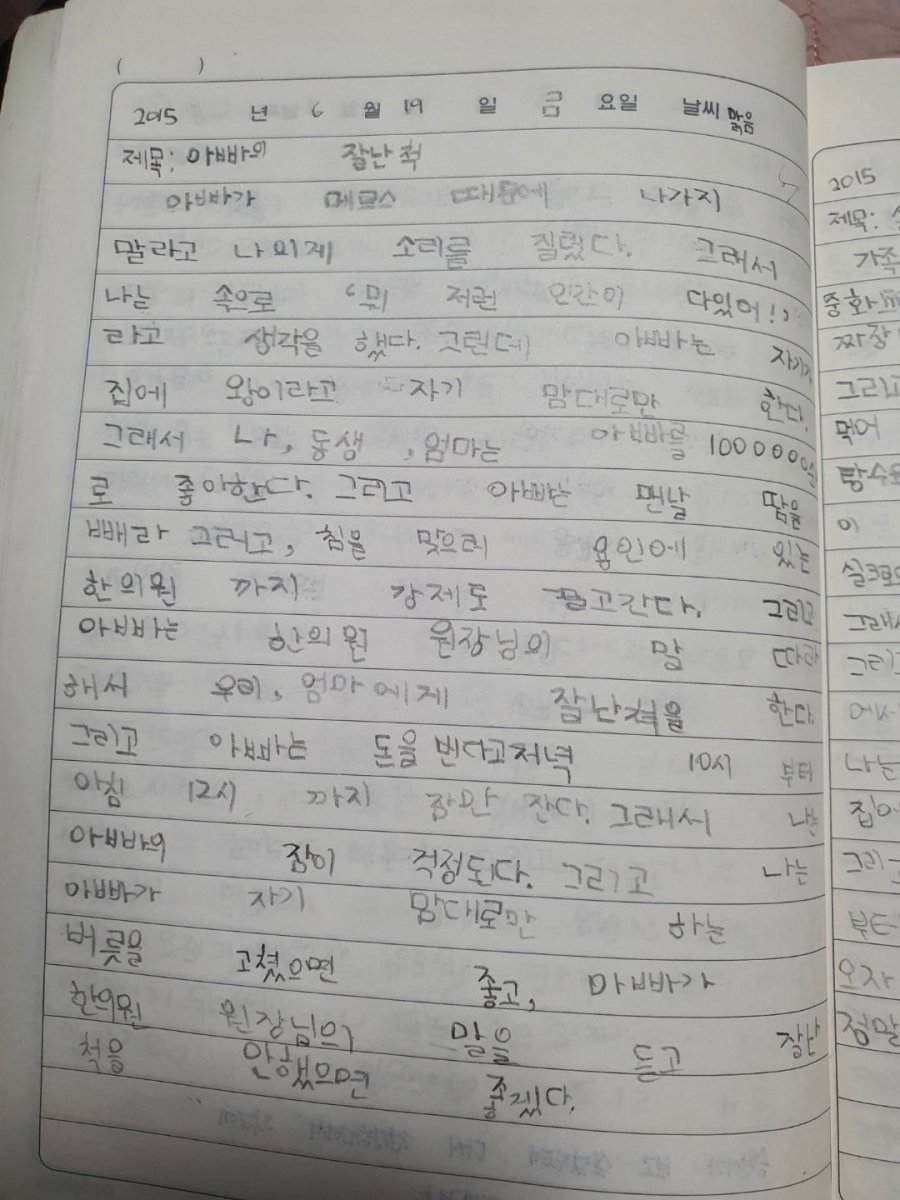 ( )
2015 년 6 월 19 일 금 요일 날씨 맑음
제목: 아빠의 잘난척
아빠가 메르스 때문에 나가지
말라고 나의게 소리를 질렀다. 그래서
나는 속으로 '뭐 저런 인간이 다있어!'
라고 생각을 했다. 그런데 아빠는 자기가
집에 왕이라고 자기 맘대로만 한다.
그래서 나, 동생, 엄마는 아빠를 1000000
로 좋아한다. 그리고 아빠는 맨날 땀을
빼라 그러고, 침을 맞으러 용인에 있는
한의원 까지 강제로 끌고간다. 그리고
아빠는 한의원 원장님의 말 따라
해서 우리, 엄마에게 잘난척을 한다.
그리고 아빠는 돈을 번다고 저녁 10시 부터
아침 12시 까지 잠만 잔다. 그래서 나는
아빠의 잠이 걱정된다. 그리고 나는
아빠가 자기 맘대로만 하는
버릇을 고쳤으면 좋고, 아빠가
한의원 원장님의 말을 듣고 잘난
척을 안했으면 좋겠다.
2015
제목:
가족
중화
짜장
그리고
먹어
탕수육
이
그래서
그리고
에서
나는
집에
그리고
부터
오자
정말